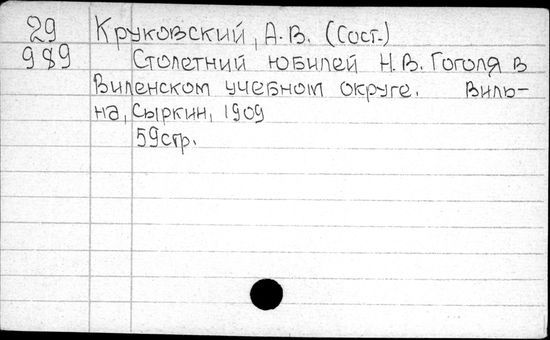 29 Круковский, А.В. (Сост.)
989 Столетний юбилей Н.В. Гоголя в
Виленском учебном округе. Виль-
на, Сыркин, 1909
59стр.